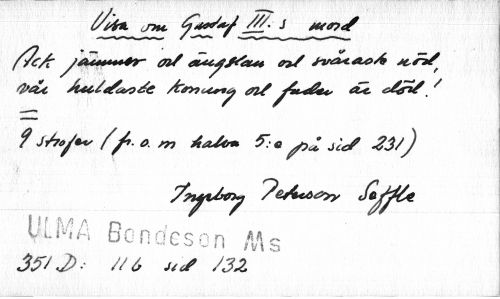 Visa om Gustaf III:s mord
Ack jämmer och ängslan och svåraste nöd,
vår huldaste konung och fader är död!
=
9 strofer (fr.o.m halva 5:e på sid 231)
Ingeborg Peterson Seffle
ULMA Bondeson Ms
351 D: 116 sid 132